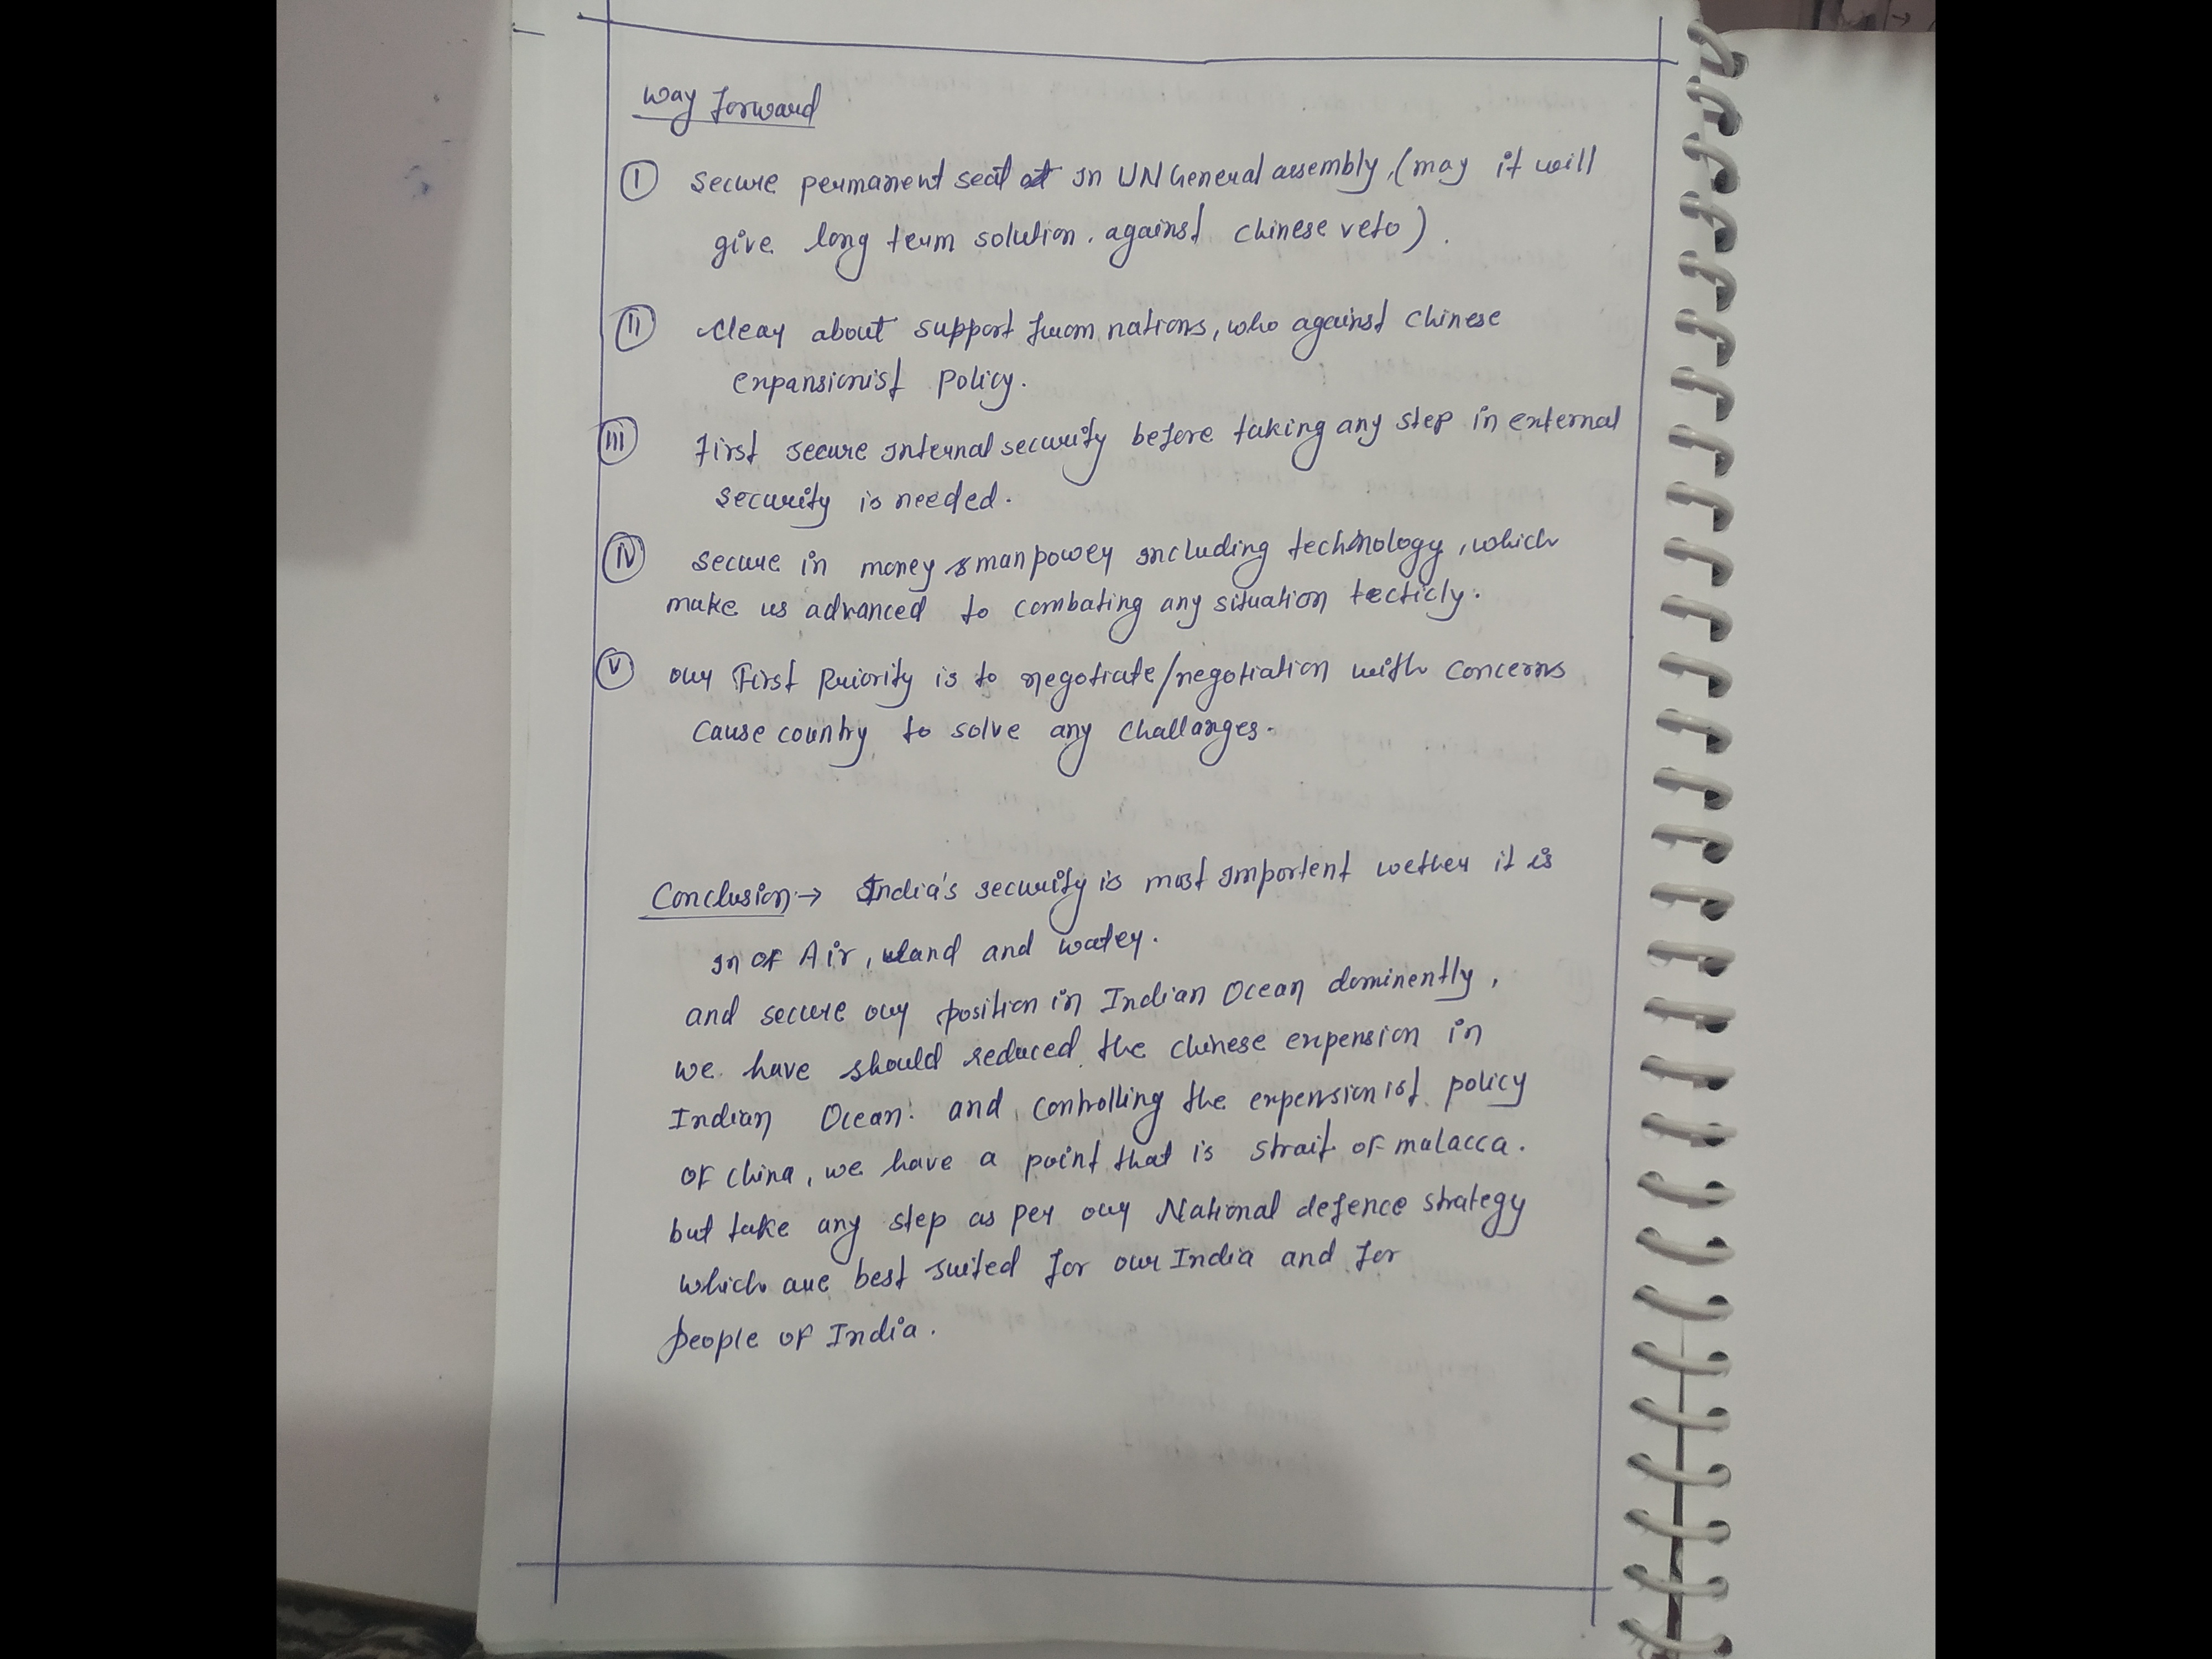 Way forward
I secure permanent seat at in UN General assembly, (may it will
give long term solution. against chinese veto).
II clear about support from nations, who against chinese
expansionist policy.
III first secure internal security before taking any step in external
security is needed.
IV secure in money & manpower including technology, which
make us advanced to combating any situation tecticly.
V our First Priority is to negotiate/negotiation with concerns
cause country to solve any challanges.
Conclusion:→ India's security is most importent wether it is
in of Air, land and water.
and secure our position in Indian Ocean dominently,
we have should reduced the chinese expension in
Indian Ocean. and controlling the expensionist policy
of china, we have a point that is strait of malacca.
but take any step as per our National defence strategy
which are best suited for our India and for
people of India.